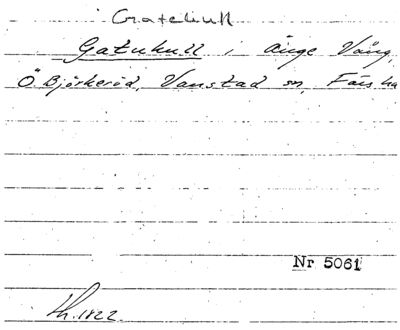 Gatukull
Gatukull i änge Vång,
Ö. Björkeröd, Vanstad sn, Färs hd
Nr 5061
Lh. 1822.